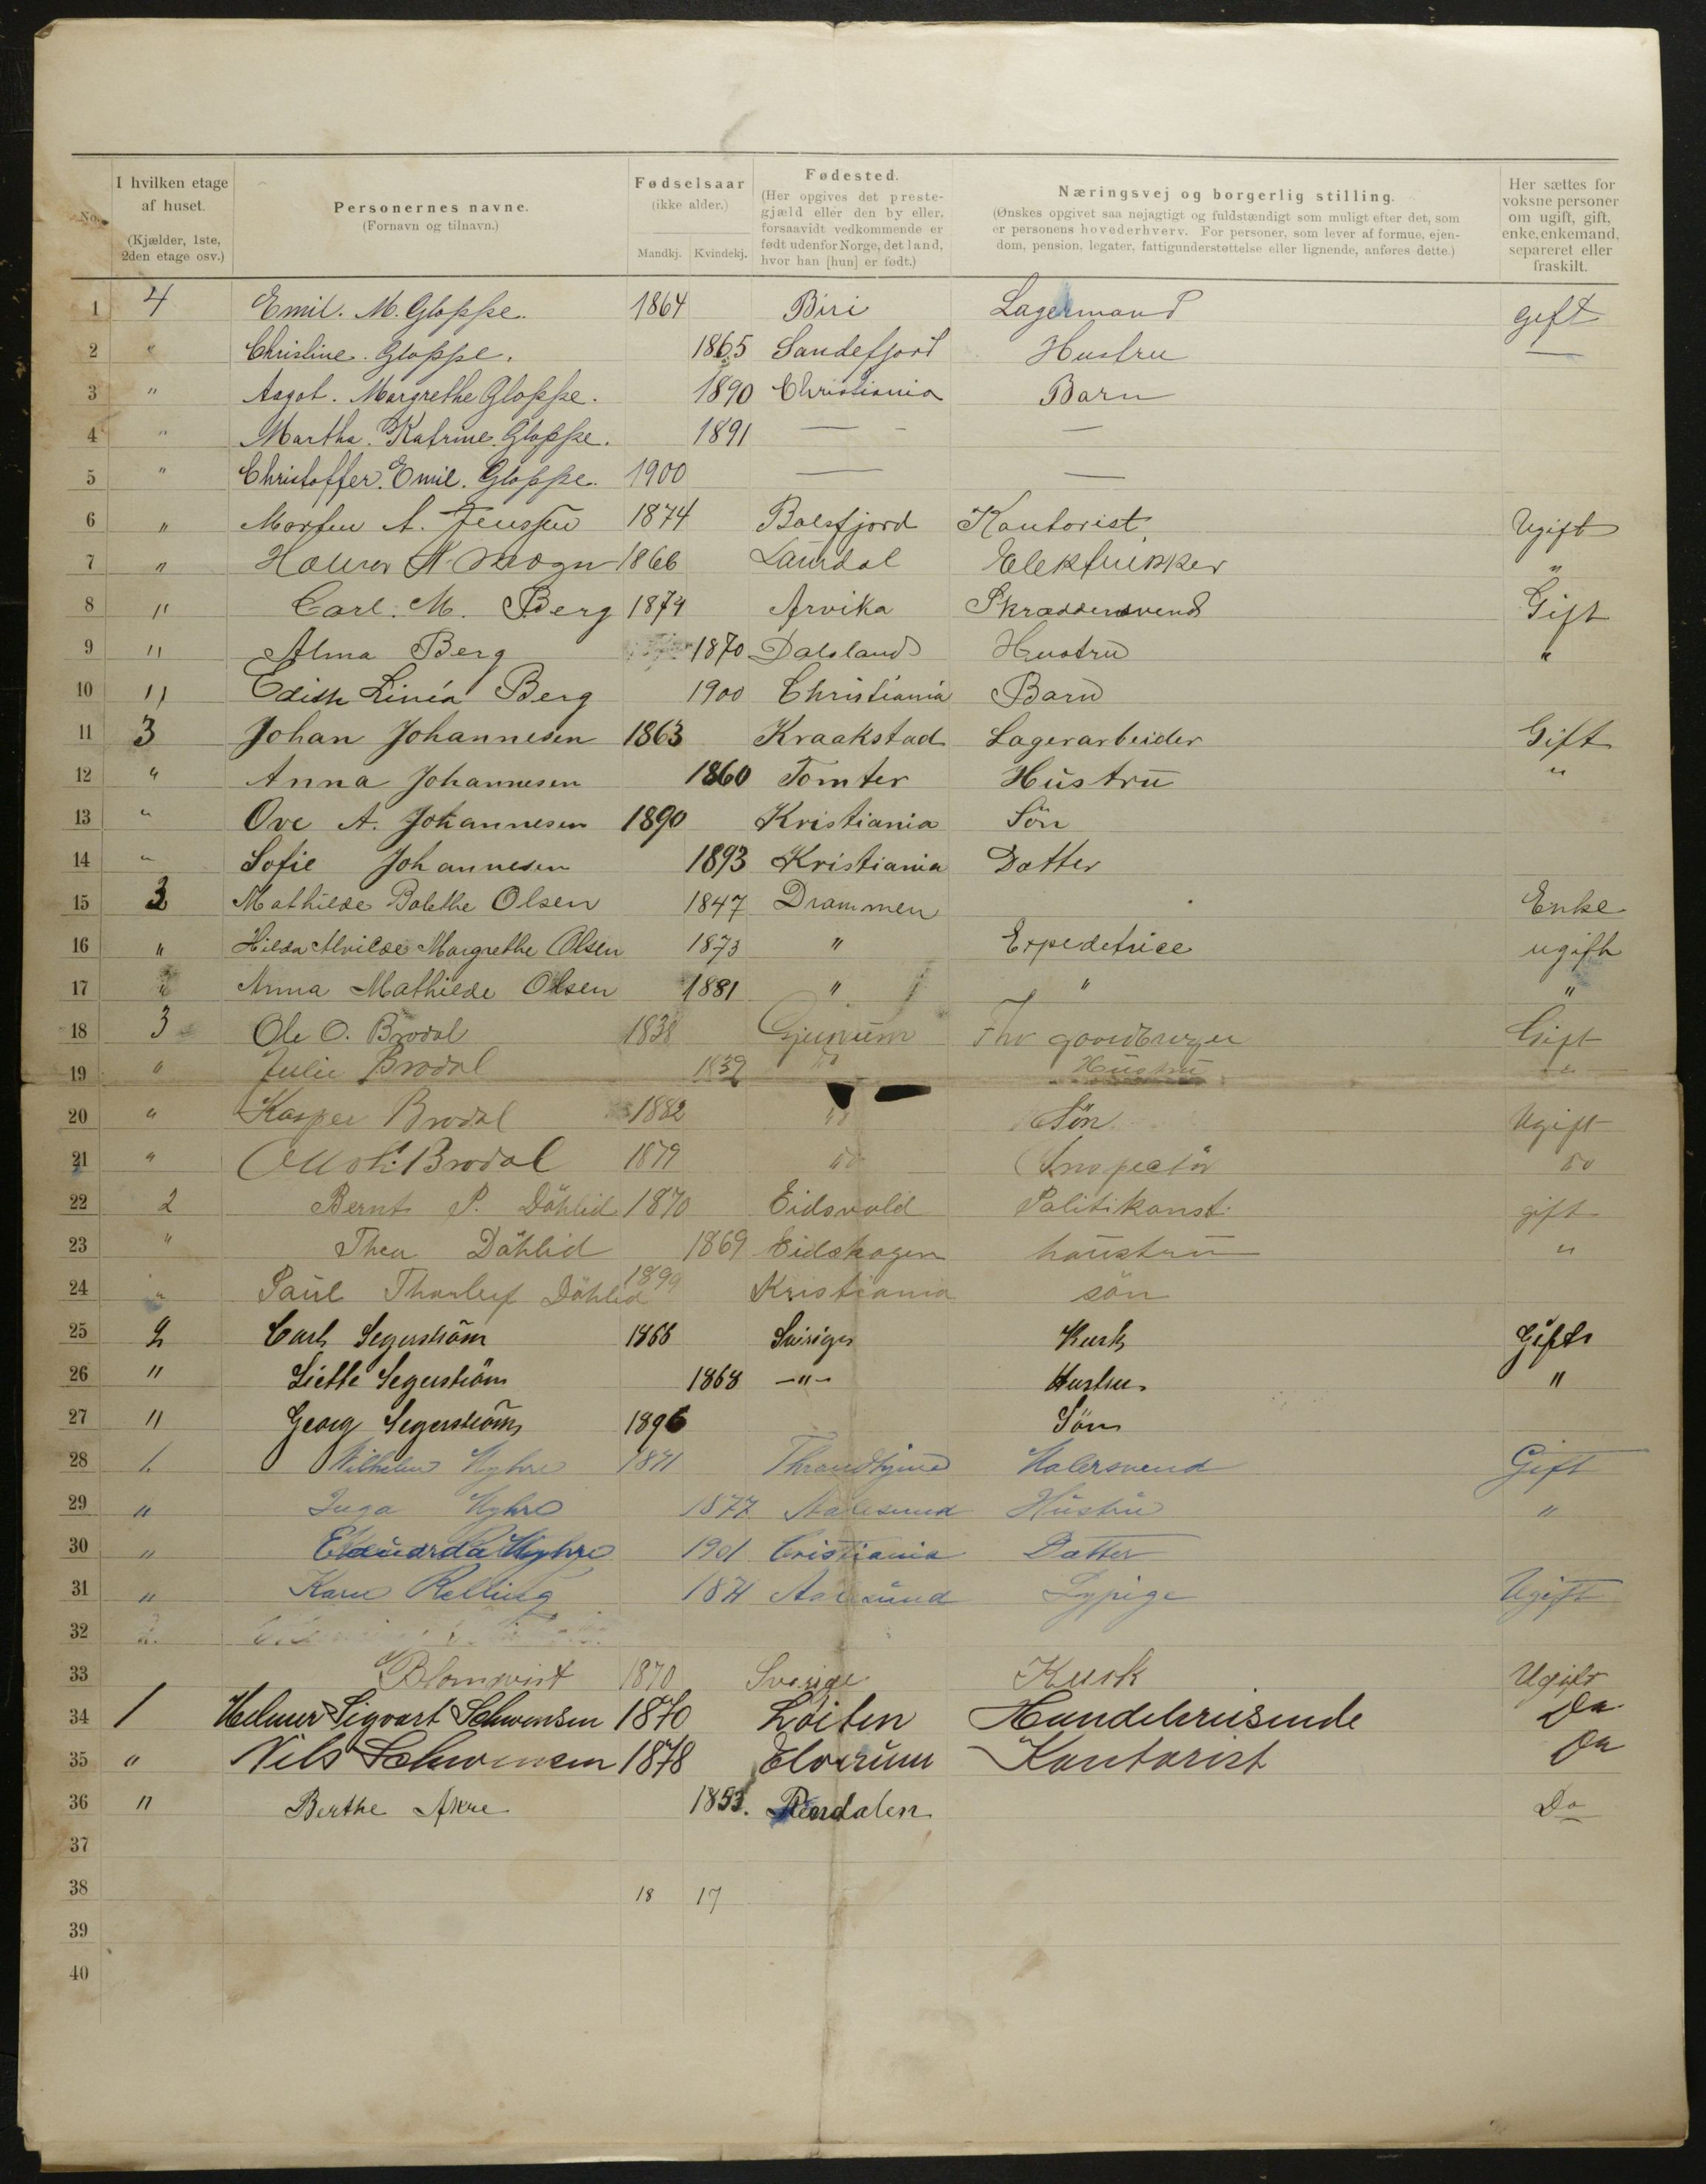 No. I hvilken etage af huset. (Kjælder, 1ste, 2den etage osv.) Personernes navne. (Fornavn og tilnavn.) Fødselsaar (ikke alder.) Mandkj. Kvindekj. Fødested. (Her opgives det prestegjæld eller den by eller, forsaavidt vedkommende er født udenfor Norge, det land, hvor han [hun] er født.) Næringsvej og borgerlig stilling. (Ønskes opgivet saa nøjagtigt og fuldstændigt som muligt efter det, som er personens hovederhverv. For personer, som lever af formue, ejendom, pension, legater, fattigunderstøttelse eller lignende, anføres dette.) Her sættes for voksne personer om ugift, gift, enke, enkemand, separeret eller fraskilt.
1 4 Emil. M. Gloppe. 1864 Biri Lagermand gift
2 " Christine. Gloppe. 1865 Sandefjord Hustru —
3 " Aagot. Margrethe Gloppe. 1890 Christiania Barn
4 " Martha. Katrine. Gloppe. 1891 — —
5 " Christoffer. Emil. Gloppe. 1900 — —
6 " Morten A. Jenssen 1874 Balsfjord Kontorist Ugift
7 " 1866 Laurdal "
8 " Carl. M. Berg 1874 Arvika Skræddersvend Gift
9 " Alma Berg 1870 Dalsland Hustru "
10 " Edith Linéa Berg 1900 Christiania Barn
11 3 Johan Johannesen 1863 Kraakstad Lagerarbeider Gift
12 " Anna Johannesen 1860 Tomter Hustru "
13 " Ove A. Johannesen 1890 Kristiania Sön
14 " Sofie Johannesen 1893 Kristiania Datter
15 3 Mathilde Bolethe Olsen 1847 Drammen Enke
16 " Hilda Alvilde Margrethe Olsen 1873 " Expeditrice ugift
17 " Anna Mathilde Olsen 1881 " " "
18 3 Ole O. Brodal 1838 Fhv gaardbruger Gift
19 " Julie Brodal 1839 do Hustru "
20 " Kasper Brodal 1882 do Sön Ugift
21 " Brodal 1879 do Inspectör do
22 2 Bernt P. Döhlid 1870 Eidsvold Politikonst. gift
23 " Thea Döhlid 1869 Eidskogen haustru "
24 " Paul Thorleif Döhlid 1899 Kristiania sön
25 2 Carl Segerström 1866 Sveriges Kusk Gift
26 " Liette Segerström 1868 -"- Hustru "
27 " Georg Segerström 1896 Sön
28 1. Wilhelm Myhre 1871 Throndhjem Malersvend Gift
29 " Inga Myhre 1877 Aalesund Hustru "
30 " Eduarda Myhre 1901 Cristiania Datter
31 " Karen Relling 1871 Aalesund Sypige Ugift
32
33 Blomqvist 1870 Sverige Kusk Ugift
34 1 Helmer Sigvart Schwensen 1870 Löiten Handelsreisende Do
35 " Nils Schwensen 1878 Elverum Kontorist Do
36 " Berthe Akre 1853. Rendalen Do
37
38 18 17
39
40